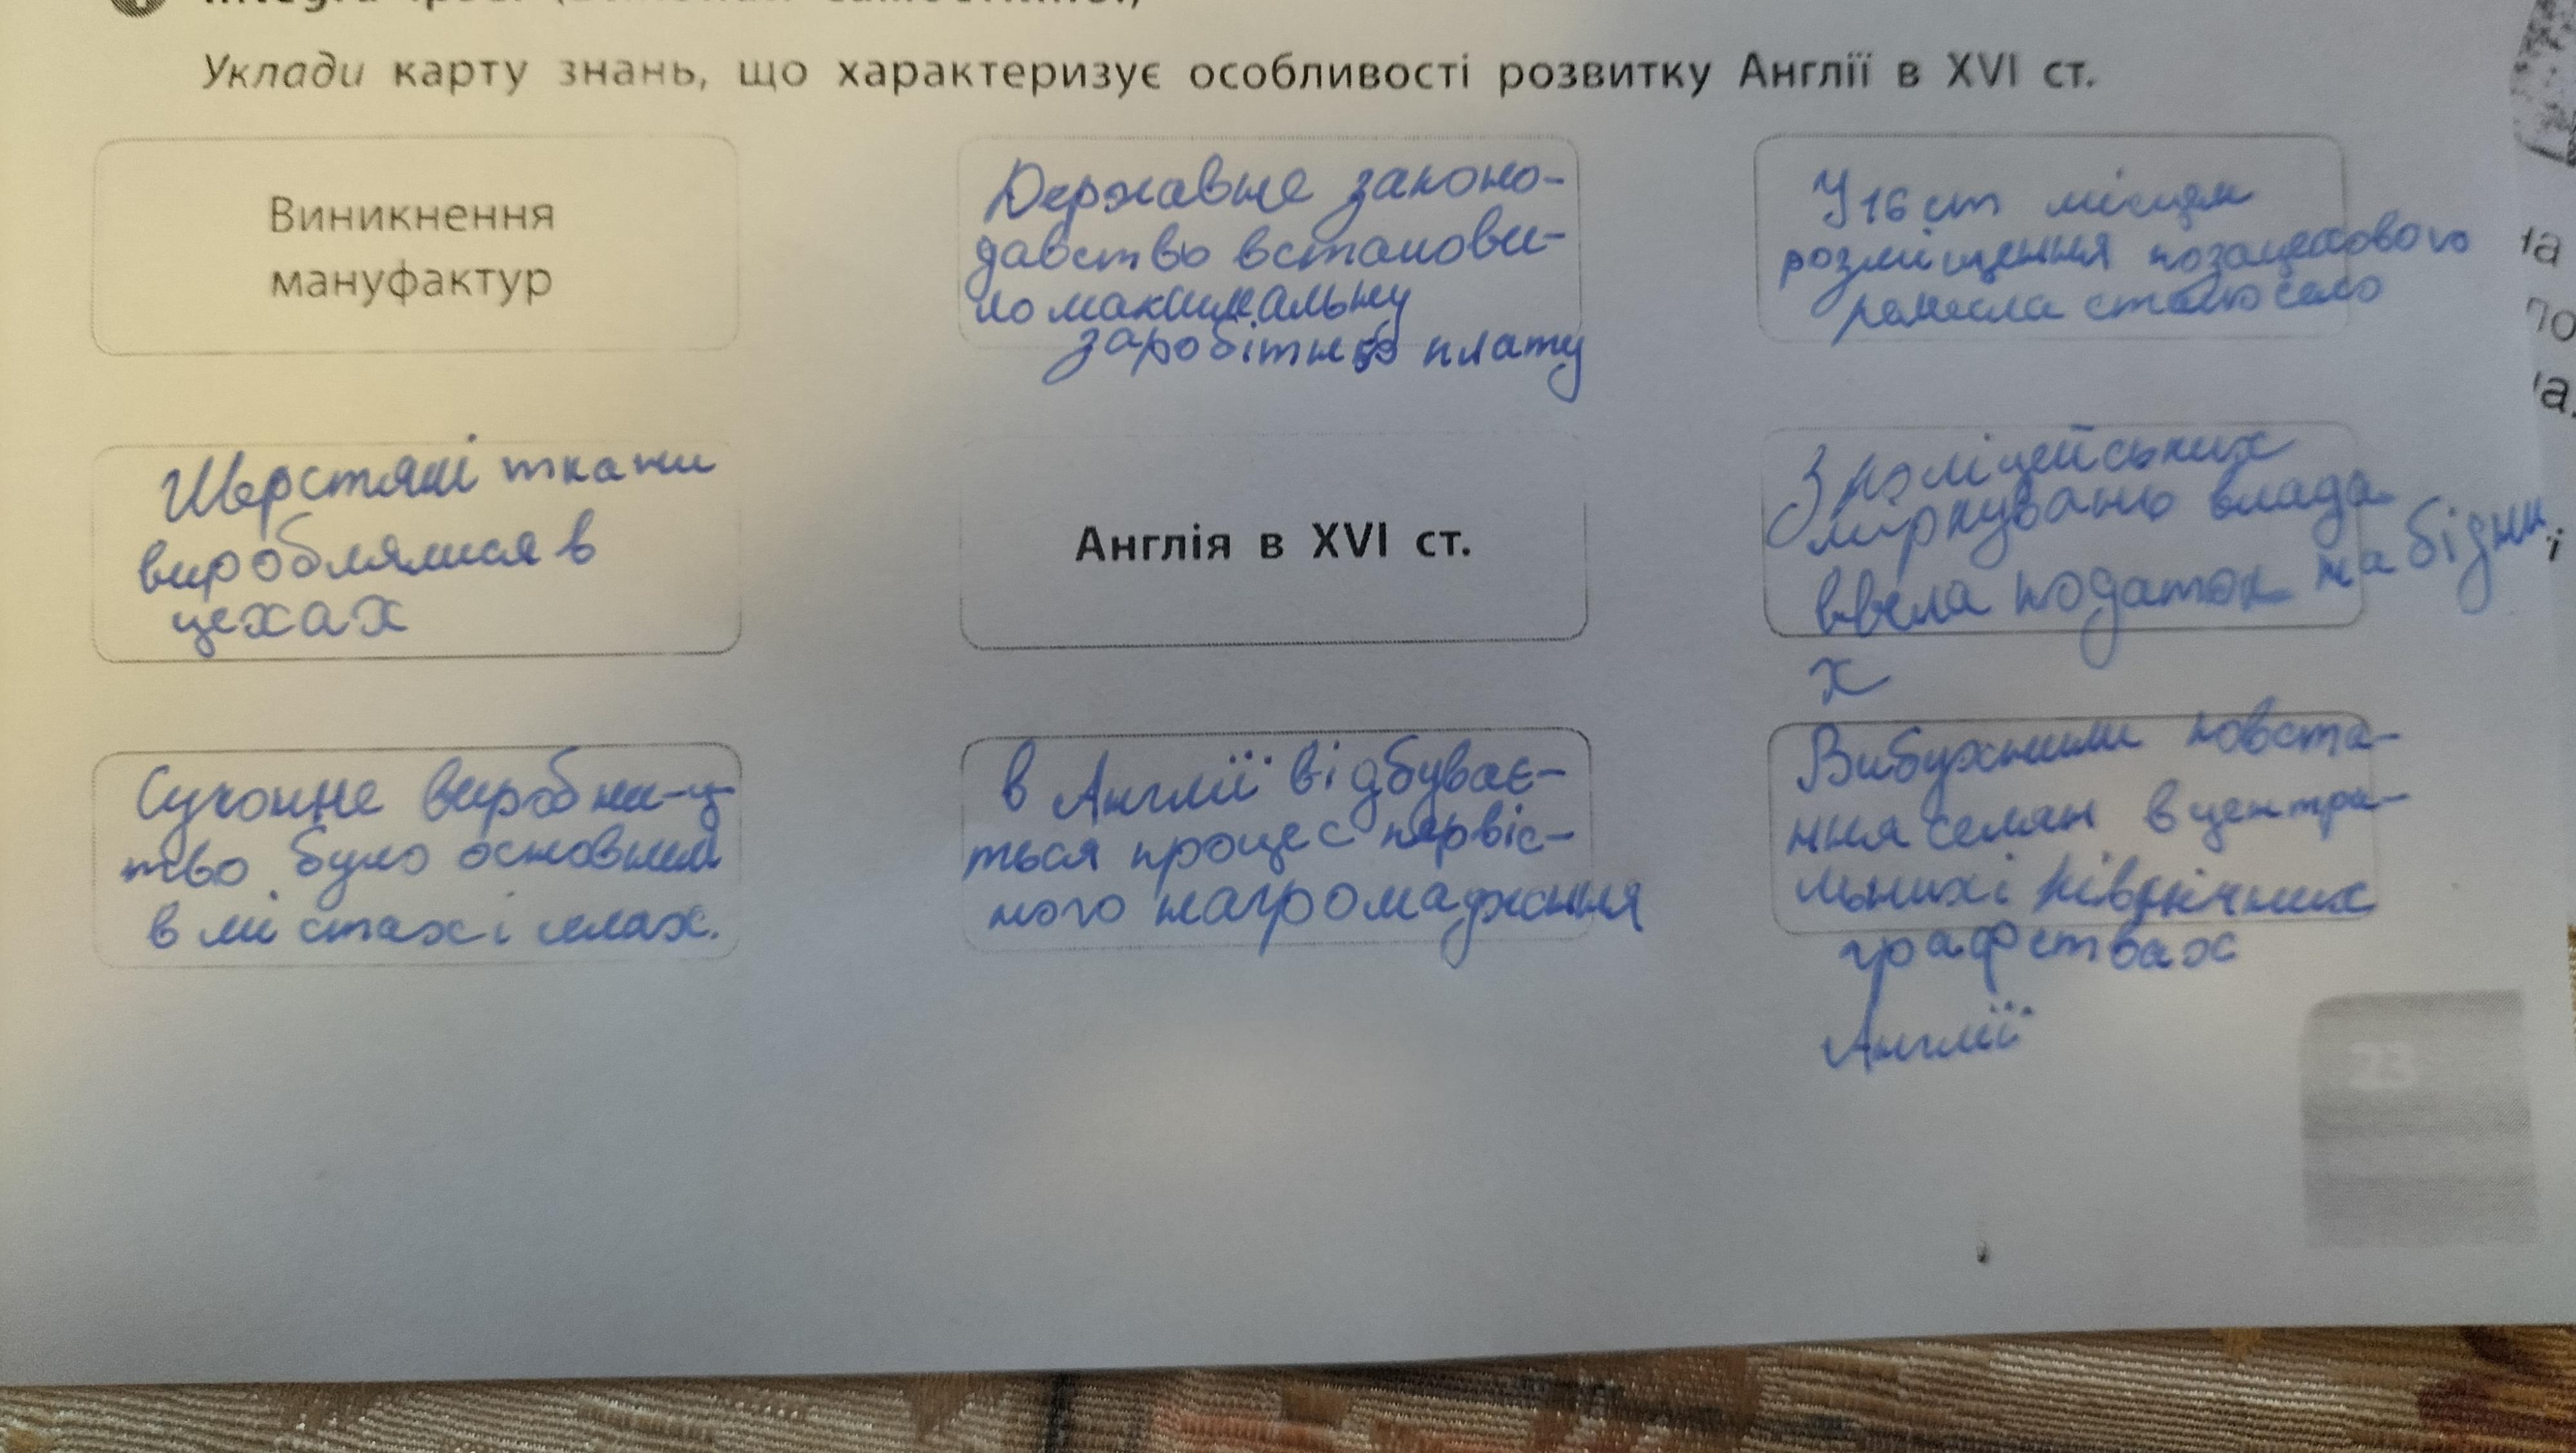 Уклади карту знань, що характеризує особливості розвитку Англії в XVI ст.
Виникнення
мануфактур
Державне законо-
давство встанови-
ло максимальну
заробітну плату
У 16 ст місцем
розміщення позацехового
ремесла стало село
Шерстяні ткани
вироблялися в
цехах
Англія в XVI ст.
З поліцейських
міркувань влада
ввела податок на бідни
х
Сучонне виробни-ц
тво було основним
в містах і селах.
в Англії відбуває-
ться процес первіс-
ного нагромадження
Вибухнули повста-
ння селян в центра-
льних і північних
графствах
Англії
23